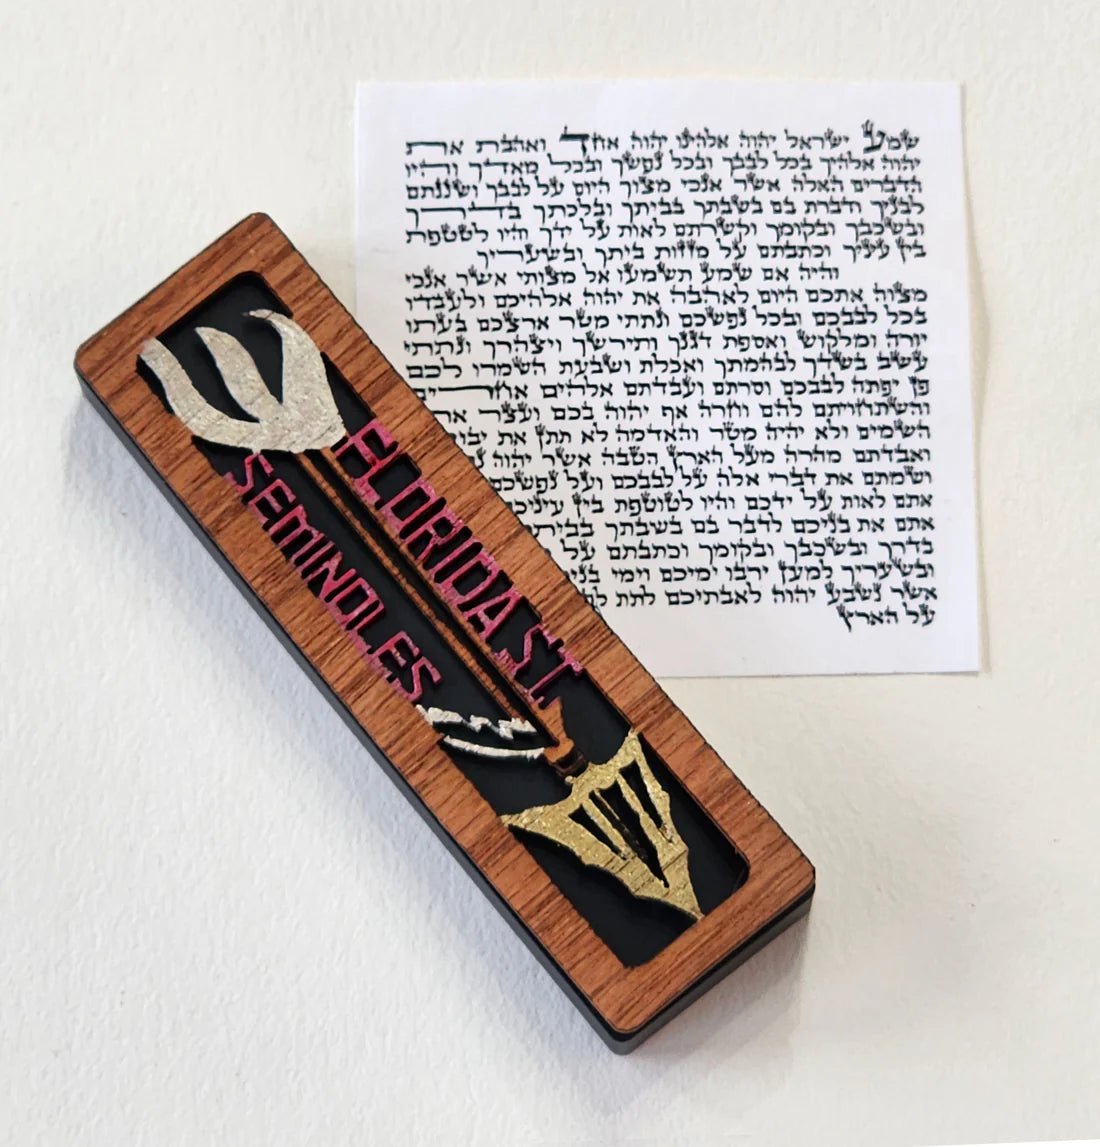 שמע ישראל יהוה אלהינו יהוה אחד ואהבת את
יהוה אלהיך בכל לבבך ובכל נפשך ובכל מאדך והיו
הדברים האלה אשר אנכי מצוך היום על לבבך ושננתם
לבניך ודברת בם בשבתך בביתך ובלכתך בדרך
ובשכבך ובקומך וקשרתם לאות על ידך והיו לטטפת
בין עיניך וכתבתם על מזזות ביתך ובשעריך
והיה אם שמע תשמעו אל מצותי אשר אנכי
מצוה אתכם היום לאהבה את יהוה אלהיכם ולעבדו
בכל לבבכם ובכל נפשכם ונתתי מטר ארצכם בעתו
יורה ומלקוש ואספת דגנך ותירשך ויצהרך ונתתי
עשב בשדך לבהמתך ואכלת ושבעת השמרו לכם
פן יפתה לבבכם וסרתם ועבדתם אלהים אחרים
והשתחויתם להם וחרה אף יהוה בכם ועצר את
השמים ולא יהיה מטר והאדמה לא תתן את
ואבדתם מהרה מעל הארץ הטבה אשר יהוה
ושמתם את דברי אלה על לבבכם ועל נפשכם
אתם לאות על ידכם והיו לטוטפת בין עיניכם
אתם את בניכם לדבר בם בשבתך
בדרך ובשכבך ובקומך וכתבתם על
ובשעריך למען ירבו ימיכם וימי
אשר נשבע יהוה לאבתיכם לתת
על הארץ
ש
FLORIDA ST.
SEMINOLES